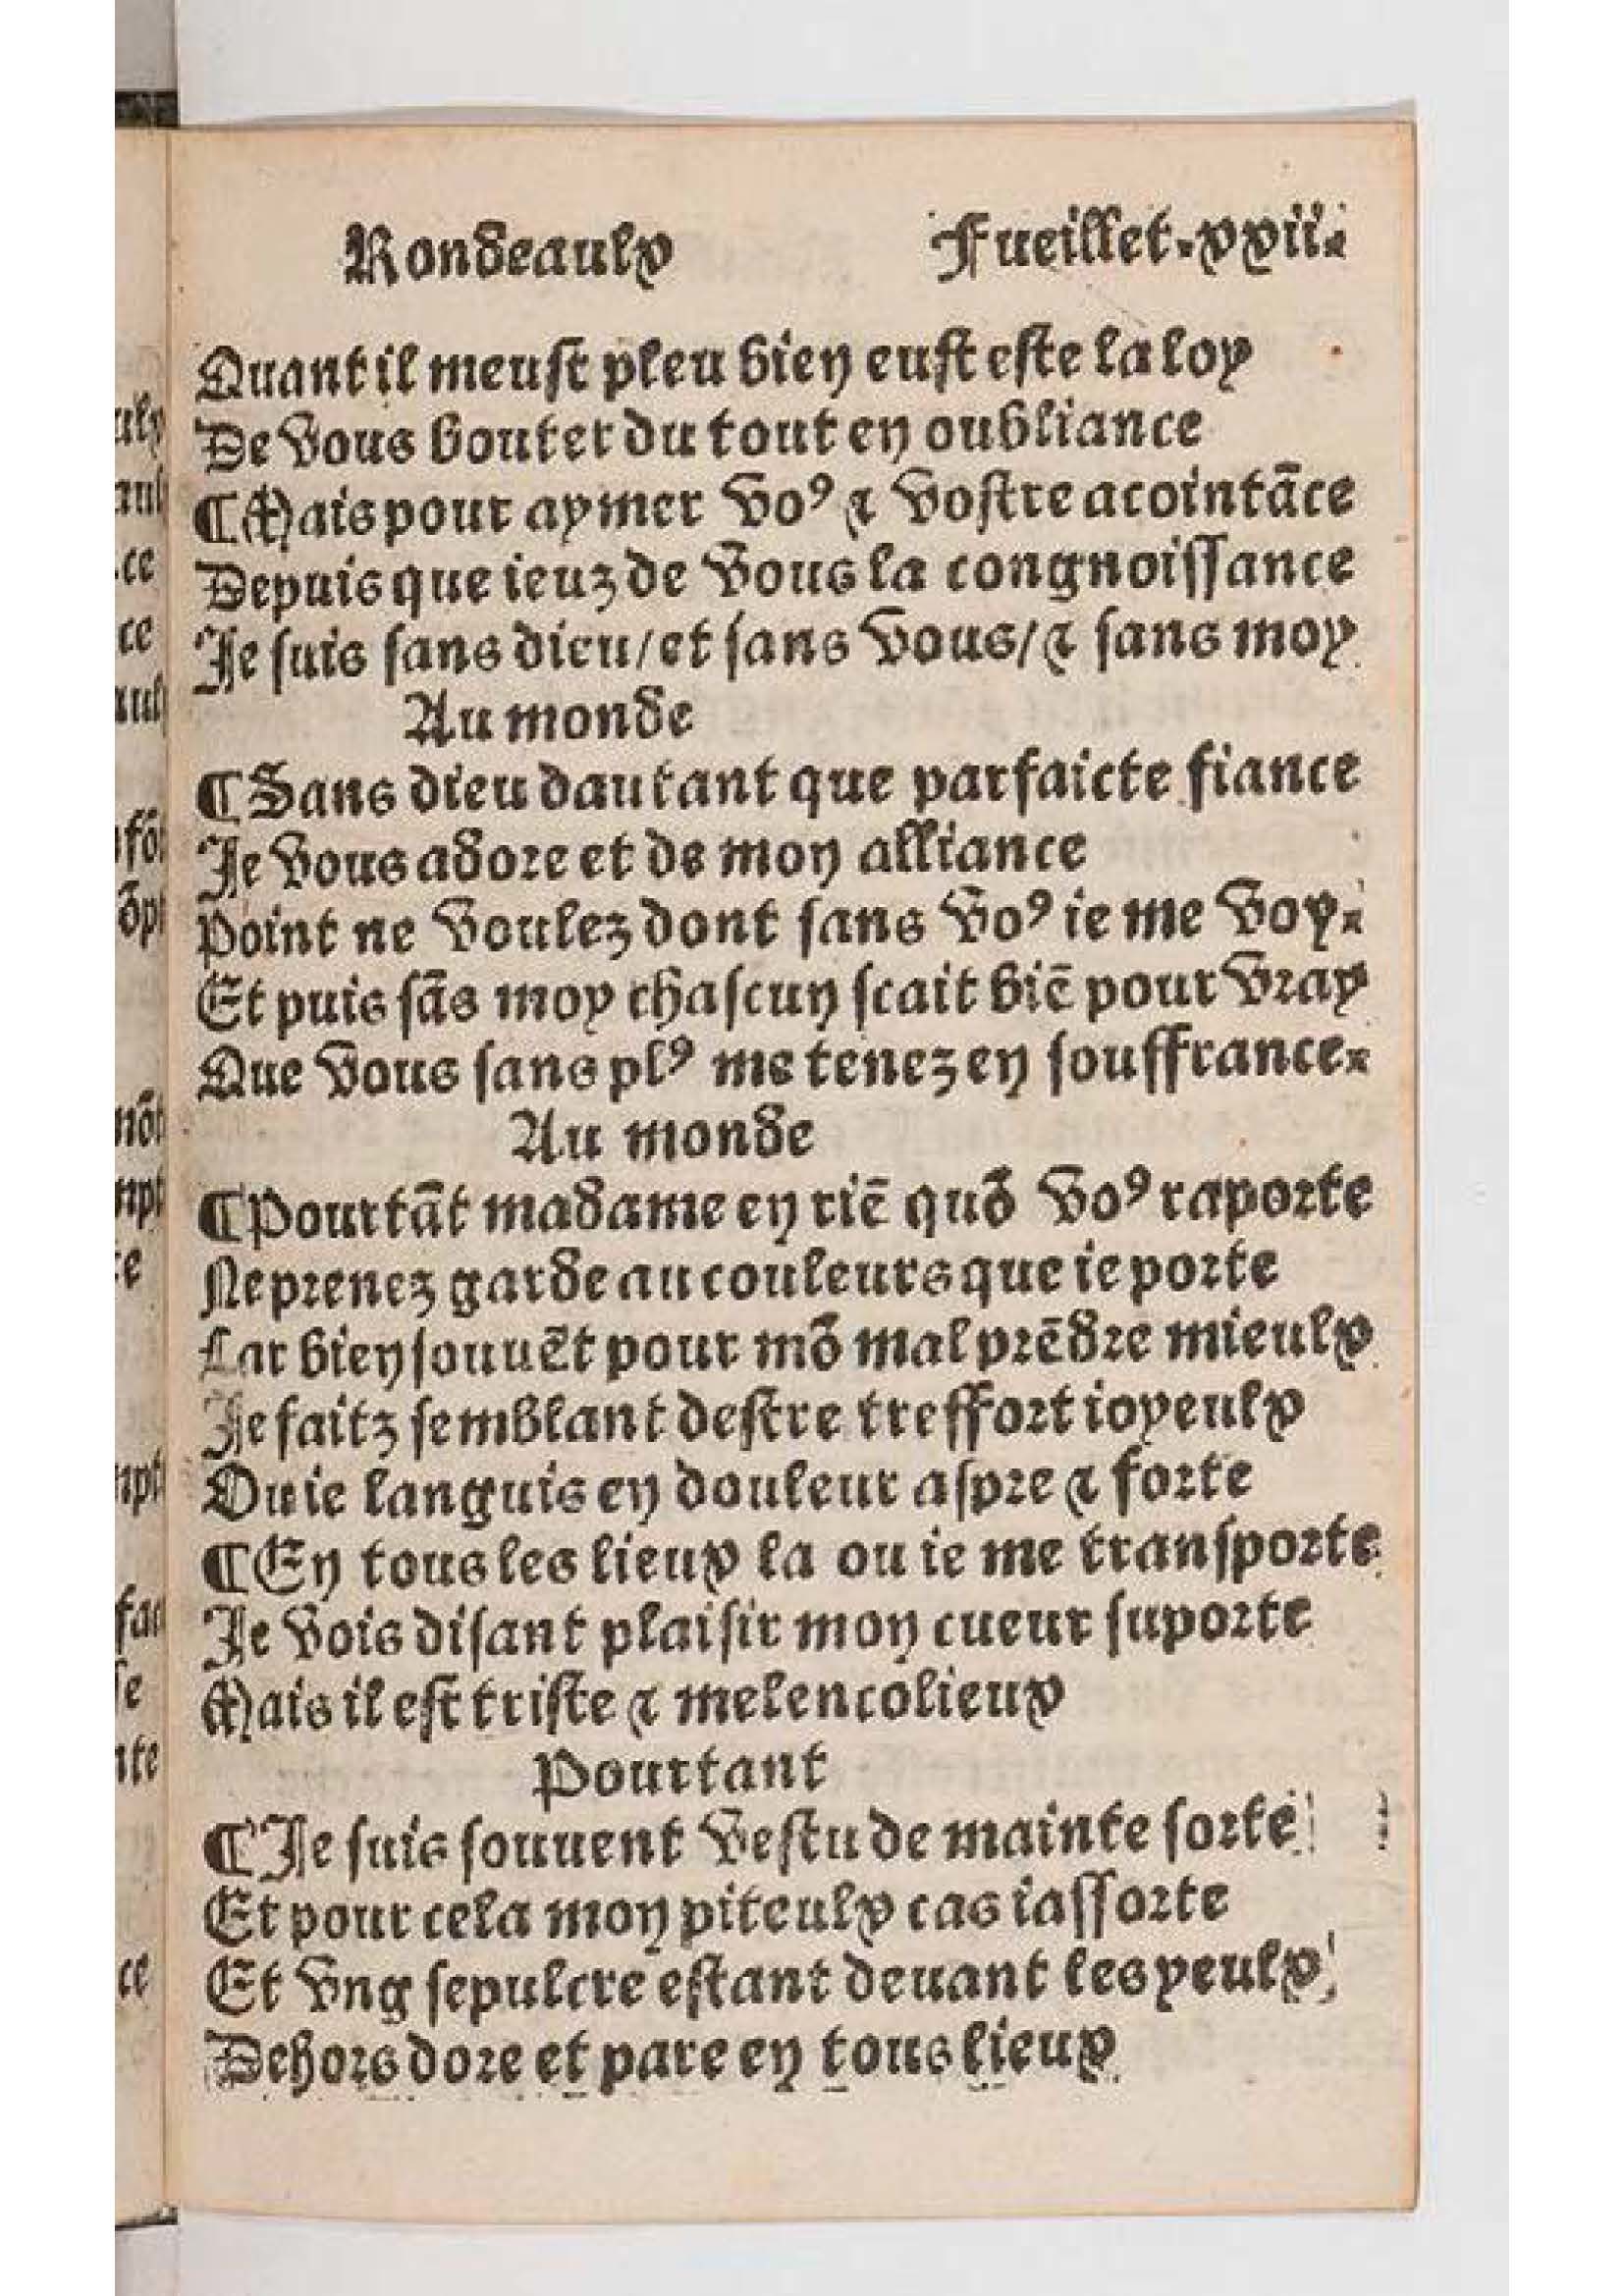 Rondeaulx Fueillet.xxii.
Quant il meust pleu bien eust este la loy
De vous bouter du tout en oubliance
¶Mais pour aymer voꝰ & vostre acointāce
Depuis que ieuz de vous la congnoissance
Je suis sans dieu/et sans vous/& sans moy
Au monde
¶Sans dieu dautant que parfaicte fiance
Je vous adore et de mon alliance
Point ne voulez dont sans voꝰ ie me voy.
Et puis sās moy chascun scait biē pour vray
Que vous sans plꝰ me tenez en souffrance.
Au monde
¶Pourtāt madame en riē quō voꝰ raporte
Ne prenez garde au couleurs que ie porte
Car bien souuēt pour mō mal prēdre mieulx
Je faitz semblant destre treffort ioyeulx
Ou ie languis en douleur aspre & forte
¶En tous les lieux la ou ie me transporte
Je vois disant plaisir mon cueur suporte
Mais il est triste & melencolieux
Pourtant
¶Je suis souuent vestu de mainte sorte
Et pour cela mon piteulx cas iassorte
Et vng sepulcre estant deuant les yeulx
Dehors dore et pare en tous lieux